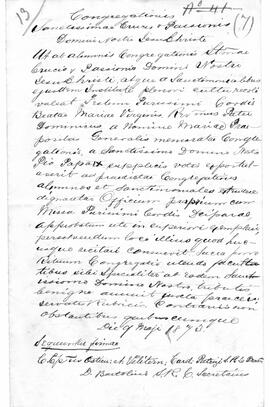 13
Nº 41
(7)
Congregationis
Sanctissimae Crucis et Passionis
Domini Nostri Jesu Christi
Ut ab alumnis Congregationis Stmae
Crucis et Passionis Domini Nostri
Jesu Christi, atque a Sanctimonialibus
ejusdem Instituti pleniori cultu recoli
valeat Festum Purissimi Cordis
Beatae Mariae Virginis Rmus Pater
Dominicus a Nomine Mariae Prae
positus Generalis memoratae Congrega
tionis, a Sanctissimo Domino Nostro
Pio Papa IX supplicibus votis expostul
averit ut praedictae Congregationis
alumnos et Sanctimoniales
dignaretur Officium proprium cum
Missa Purissimi Cordis Deiparae
approbatum uti in superiori exemplari,
persolvendum loco illius quod hu
cusque recitari consuevit Sacra porro
Rituum Congregatio utendo faculta
tibus sibi specialiter ab eodem Sanc
tissimo Domino Nostro, tributis
benigne annuit juxta preces;
servatis Rubricis Contrariis non
obstantibus quibuscumque
Die 9 Maji 187
Sequuntur firmae
C. Episc. Ostien: et Velitern: Card: Patrizi S.R.C. Praef.
D. Bartolini S.R.C. Secretarius